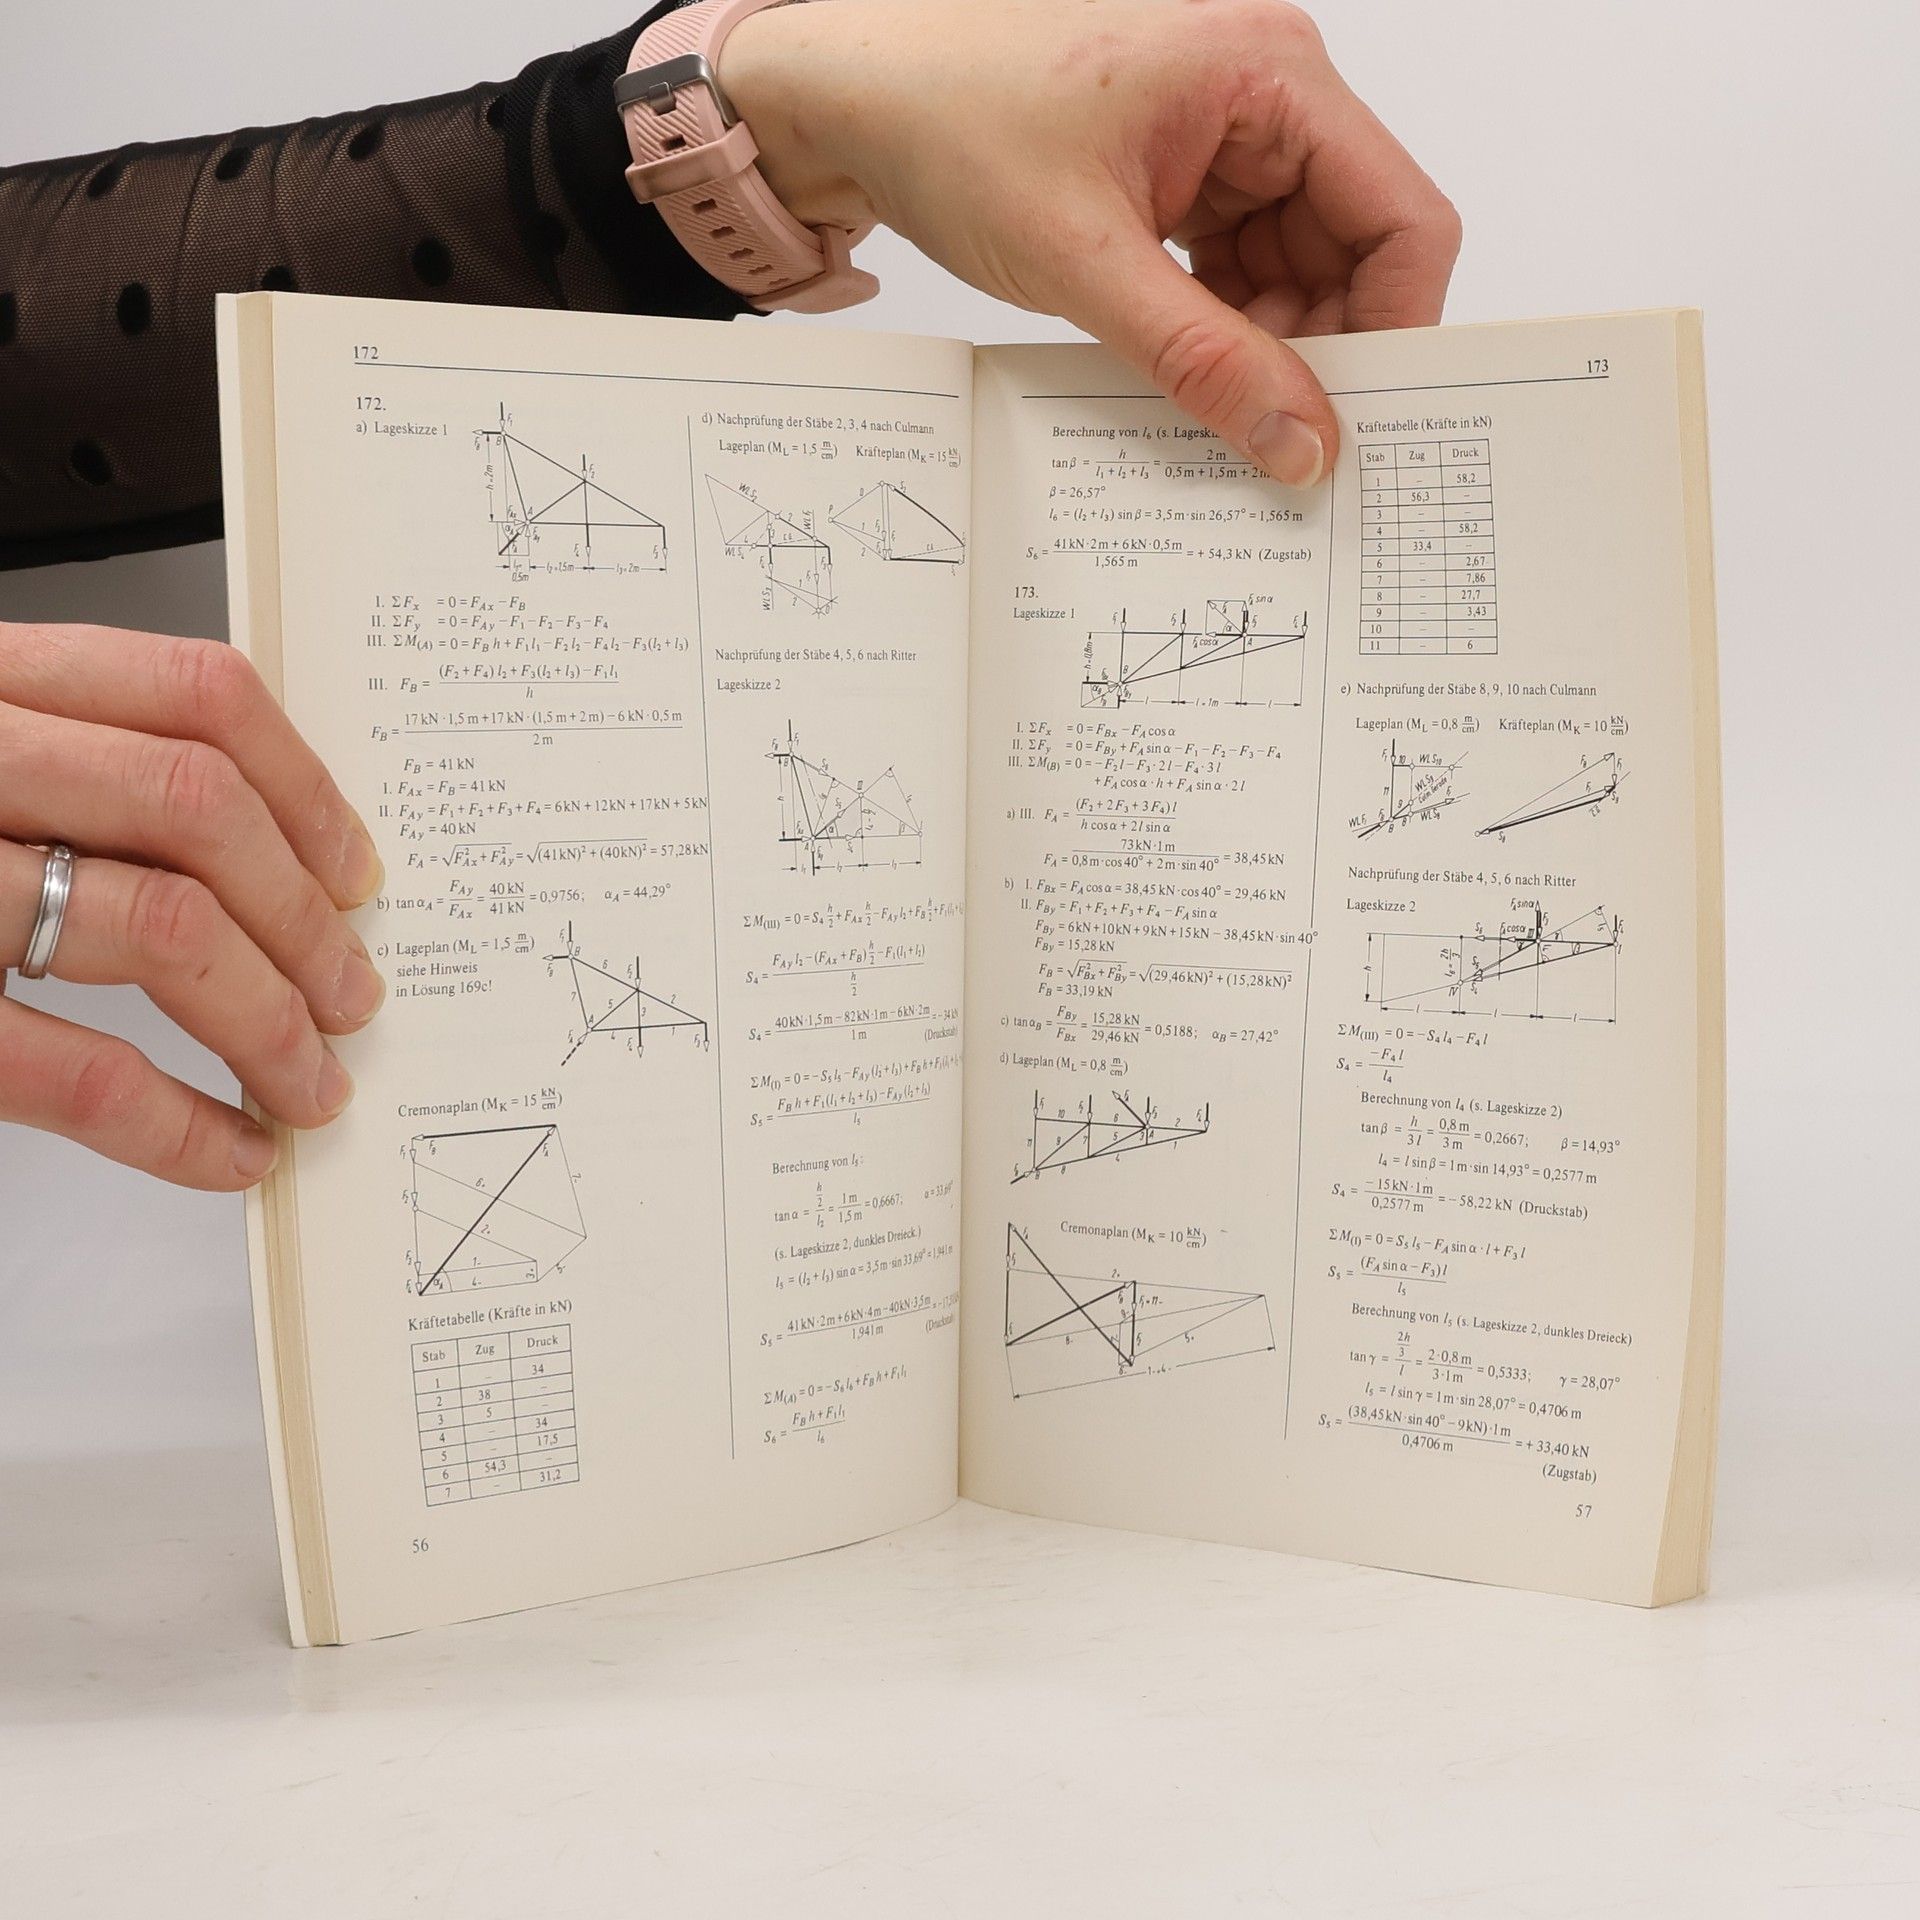 172
172.
a) Lageskizze 1
I. ΣF_x = 0 = F_Ax − F_B
II. ΣF_y = 0 = F_Ay − F_1 − F_2 − F_3 − F_4
III. ΣM_(A) = 0 = F_B h + F_1 l_1 − F_2 l_2 − F_4 l_2 − F_3 (l_2 + l_3)
III. F_B = ((F_2 + F_4) l_2 + F_3 (l_2 + l_3) − F_1 l_1) / h
F_B = (17 kN · 1,5 m + 17 kN · (1,5 m + 2 m) − 6 kN · 0,5 m) / 2 m
F_B = 41 kN
I. F_Ax = F_B = 41 kN
II. F_Ay = F_1 + F_2 + F_3 + F_4 = 6 kN + 12 kN + 17 kN + 5 kN
F_Ay = 40 kN
F_A = √(F_Ax² + F_Ay²) = √((41 kN)² + (40 kN)²) = 57,28 kN
b) tan α_A = F_Ay / F_Ax = 40 kN / 41 kN = 0,9756; α_A = 44,29°
c) Lageplan (M_L = 1,5 m/cm)
siehe Hinweis
in Lösung 169c!
Cremonaplan (M_K = 15 kN/cm)
Kräftetabelle (Kräfte in kN)
Stab Zug Druck
1 – 34
2 38 –
3 5 –
4 – 34
5 – 17,5
6 54,3 –
7 – 31,2
56
d) Nachprüfung der Stäbe 2, 3, 4 nach Culmann
Lageplan (M_L = 1,5 m/cm) Kräfteplan (M_K = 15 kN/cm)
Nachprüfung der Stäbe 4, 5, 6 nach Ritter
Lageskizze 2
ΣM_(III) = 0 = S_4 h/2 + F_Ax h/2 − F_Ay l_2 + F_B h/2 + F_1 (l_1 + l_2)
S_4 = (F_Ay l_2 − (F_Ax + F_B) h/2 − F_1 (l_1 + l_2)) / (h/2)
S_4 = (40 kN · 1,5 m − 82 kN · 1 m − 6 kN · 2 m) / 1 m = − 34 kN
(Druckstab)
ΣM_(I) = 0 = − S_5 l_5 − F_Ay (l_2 + l_3) + F_B h + F_1 (l_1 + l_2
S_5 = (F_B h + F_1 (l_1 + l_2 + l_3) − F_Ay (l_2 + l_3)) / l_5
Berechnung von l_5:
tan α = (h/2) / l_2 = 1 m / 1,5 m = 0,6667; α = 33,69°
(s. Lageskizze 2, dunkles Dreieck.)
l_5 = (l_2 + l_3) sin α = 3,5 m · sin 33,69° = 1,941 m
S_5 = (41 kN · 2 m + 6 kN · 4 m − 40 kN · 3,5 m) / 1,941 m
(Druckstab)
ΣM_(A) = 0 = − S_6 l_6 + F_B h + F_1 l_1
S_6 = (F_B h + F_1 l_1) / l_6
173
Berechnung von l_6 (s.
tan β = h / (l_1 + l_2 + l_3) = 2 m / (0,5 m + 1,5 m + 2
β = 26,57°
l_6 = (l_2 + l_3) sin β = 3,5 m · sin 26,57° = 1,565 m
S_6 = (41 kN · 2 m + 6 kN · 0,5 m) / 1,565 m = + 54,3 kN (Zugstab)
173.
Lageskizze 1
I. ΣF_x = 0 = F_Bx − F_A cos α
II. ΣF_y = 0 = F_By + F_A sin α − F_1 − F_2 − F_3 − F_4
III. ΣM_(B) = 0 = − F_2 l − F_3 · 2 l − F_4 · 3 l
+ F_A cos α · h + F_A sin α · 2 l
a) III. F_A = (F_2 + 2 F_3 + 3 F_4) l / (h cos α + 2 l sin α)
F_A = 73 kN · 1 m / (0,8 m · cos 40° + 2 m · sin 40°) = 38,45 kN
b) I. F_Bx = F_A cos α = 38,45 kN · cos 40° = 29,46 kN
II. F_By = F_1 + F_2 + F_3 + F_4 − F_A sin α
F_By = 6 kN + 10 kN + 9 kN + 15 kN − 38,45 kN · sin 40°
F_By = 15,28 kN
F_B = √(F_Bx² + F_By²) = √((29,46 kN)² + (15,28 kN)²)
F_B = 33,19 kN
c) tan α_B = F_By / F_Bx = 15,28 kN / 29,46 kN = 0,5188; α_B = 27,42°
d) Lageplan (M_L = 0,8 m/cm)
Cremonaplan (M_K = 10 kN/cm)
Kräftetabelle (Kräfte in kN)
Stab Zug Druck
1 – 58,2
2 56,3 –
3 – –
4 – 58,2
5 33,4 –
6 – 2,67
7 – 7,86
8 – 27,7
9 – 3,43
10 – –
11 – 6
e) Nachprüfung der Stäbe 8, 9, 10 nach Culmann
Lageplan (M_L = 0,8 m/cm) Kräfteplan (M_K = 10 kN/cm)
Nachprüfung der Stäbe 4, 5, 6 nach Ritter
Lageskizze 2
ΣM_(III) = 0 = − S_4 l_4 − F_4 l
S_4 = − F_4 l / l_4
Berechnung von l_4 (s. Lageskizze 2)
tan β = h / 3 l = 0,8 m / 3 m = 0,2667; β = 14,93°
l_4 = l sin β = 1 m · sin 14,93° = 0,2577 m
S_4 = − 15 kN · 1 m / 0,2577 m = − 58,22 kN (Druckstab)
ΣM_(I) = 0 = S_5 l_5 − F_A sin α · l + F_3 l
S_5 = (F_A sin α − F_3) l / l_5
Berechnung von l_5 (s. Lageskizze 2, dunkles Dreieck)
tan γ = (2h/3) / l = 2 · 0,8 m / 3 · 1 m = 0,5333; γ = 28,07°
l_5 = l sin γ = 1 m · sin 28,07° = 0,4706 m
S_5 = (38,45 kN · sin 40° − 9 kN) · 1 m / 0,4706 m = + 33,40 kN
(Zugstab)
57